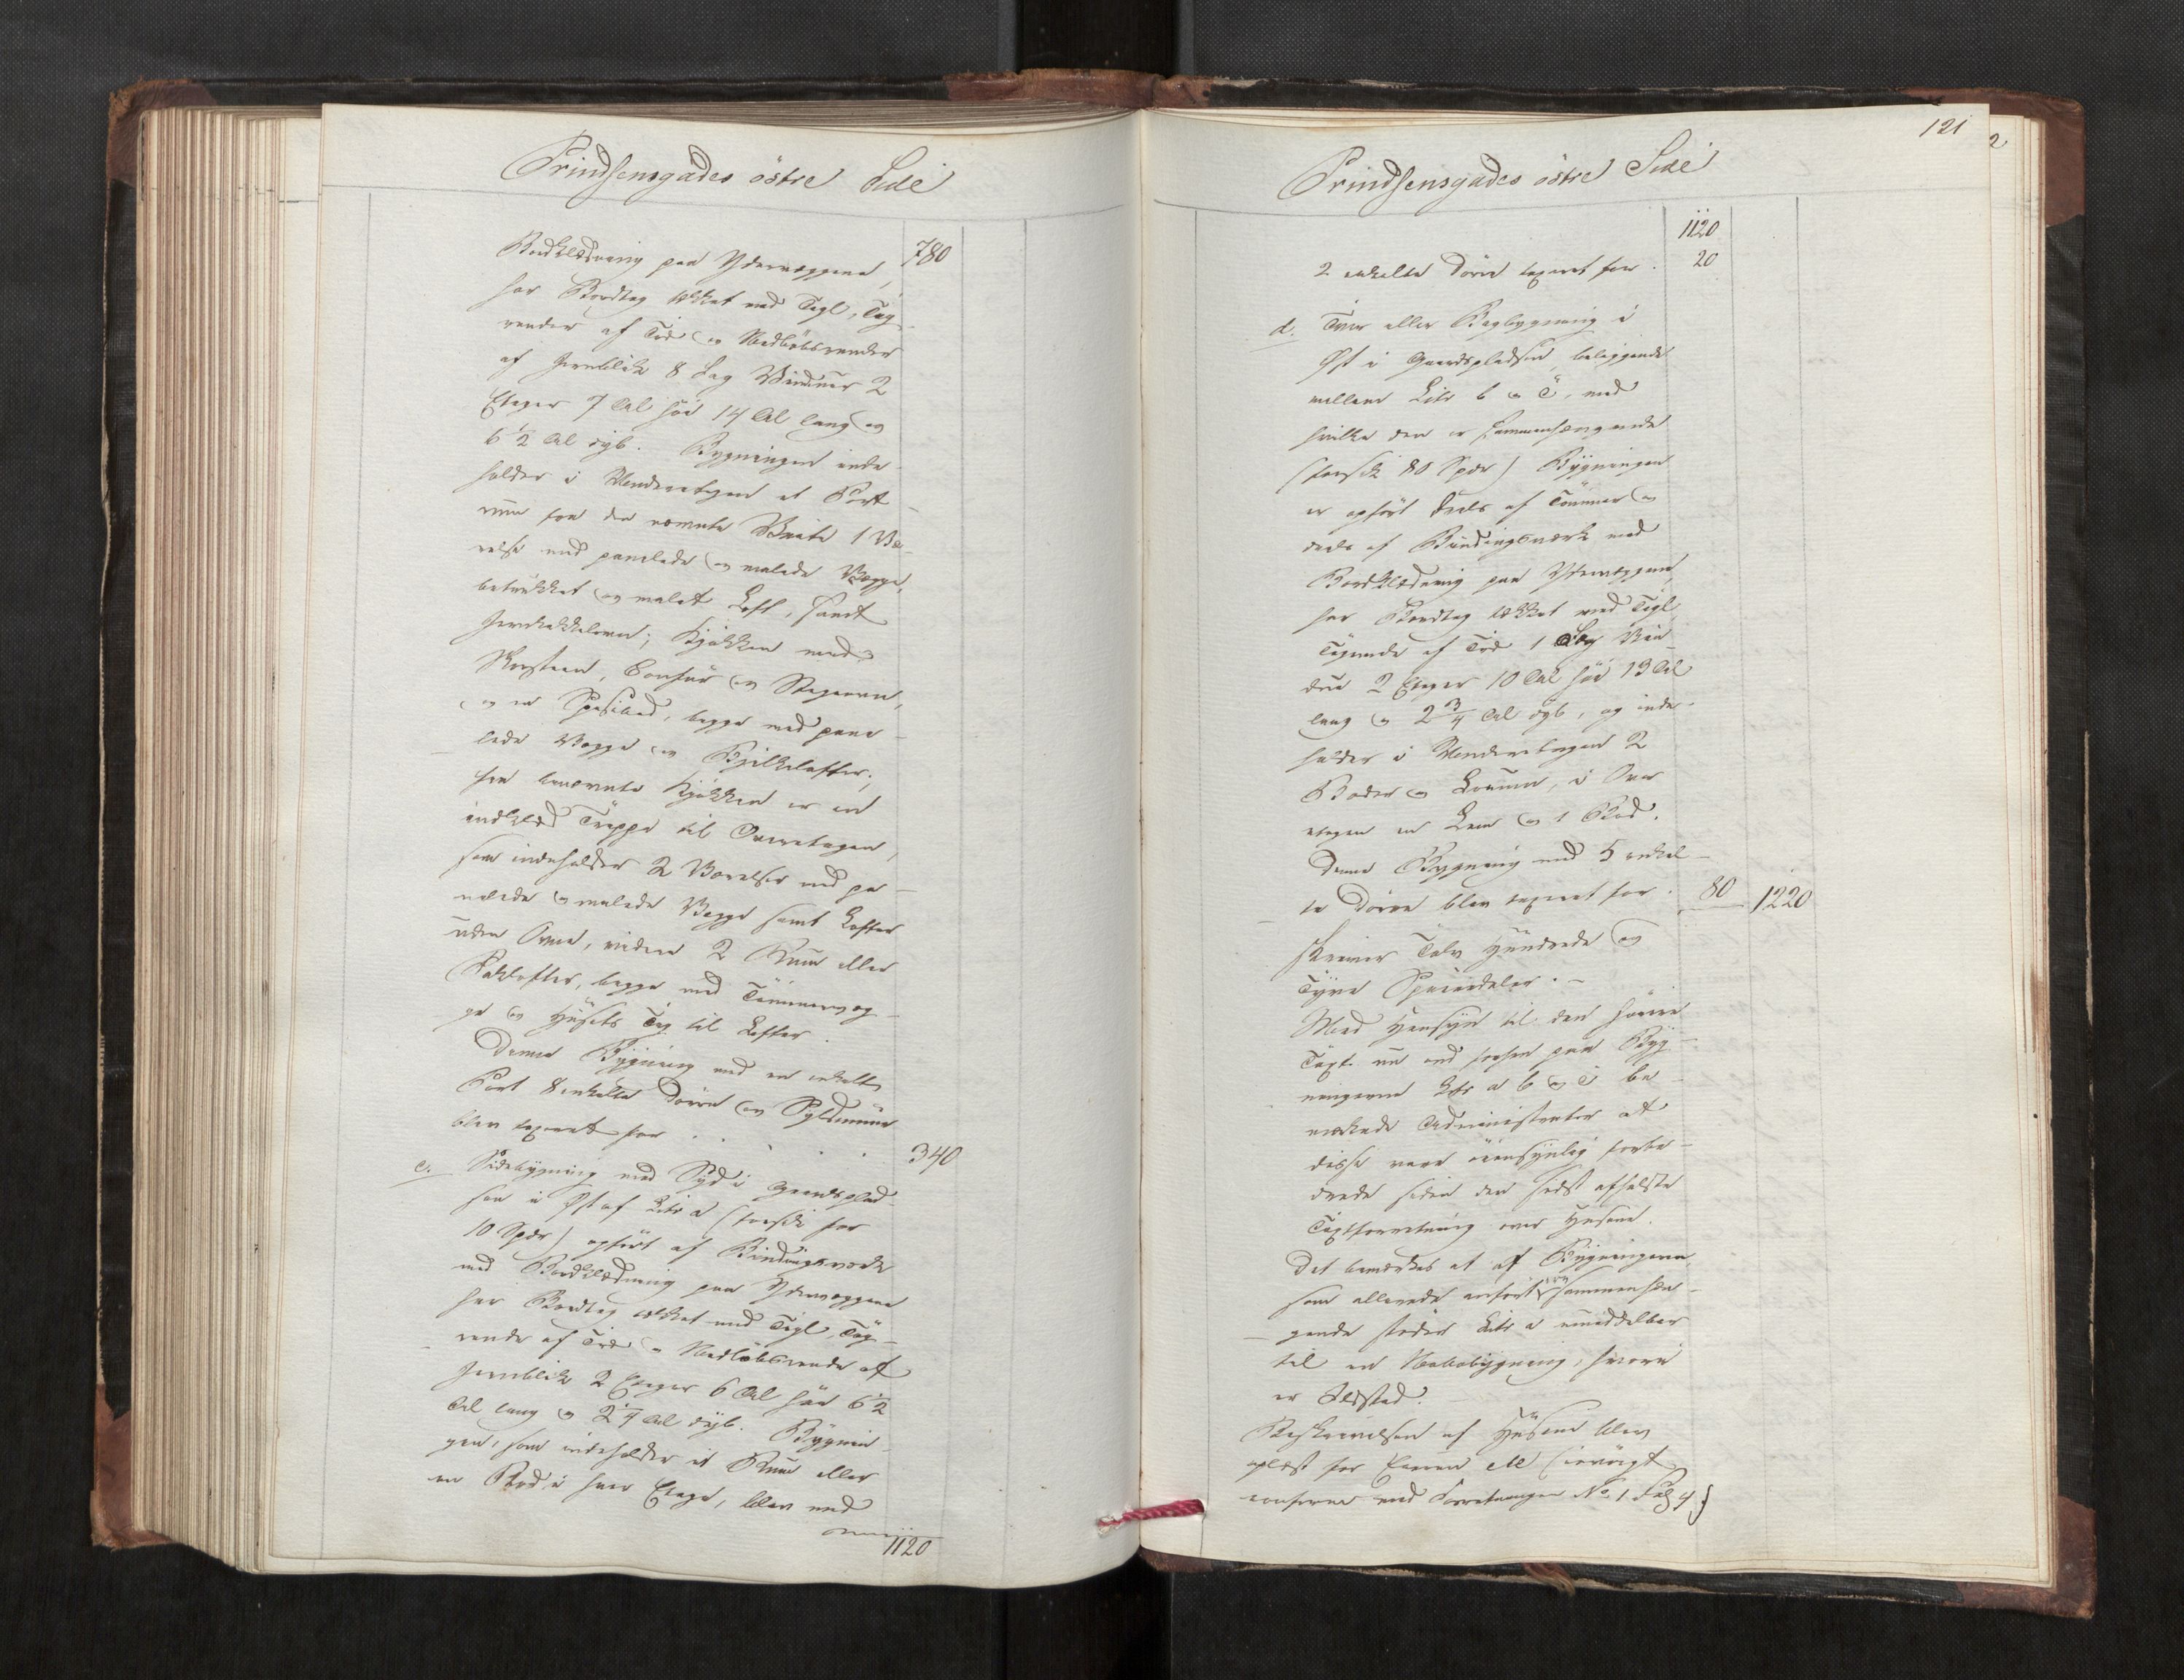 Prindsensgades östre Side
Bordklædning paa Ydervæggene, 780
har Bordtag tækket med Tegl, Tag-
render af Træ og Nedløbsrender
af Jernblik 8 Fag Vinduer 2
Etager 7 Al høi 14 Al lang og
6½ Al dyb. Bygningen inde-
holder i Underetagen et Port-
rum fra det nævnte 1 Væ-
relse med panelede og malede Vægge,
betrukket og malet Loft, samt
Jernkakkelovn; Kjøkken med
Skorsteen, Comfur og Bagerovn,
og et Spisekad, begge med pane-
lede Vægge og Bjelkelofter,
fra benævnte Kjøkken er en
indklæd Trappe til Overetagen,
som indeholder 2 Værelser med pa-
nelede og malede Vægge samt Lofter
uden Ovne, videre 2 Rum eller
Paklofter, begge med Tømmervæg-
ge og Husets Tag til Lofter.
Denne Bygning med en enkelt
Port 8 enkelte Dørre og Fyldmuur
blev taxeret for . . . . 340
c. Sidebygning mod Syd i Gaardsplad-
sen i Øst af Litr a (forsik for
10 Spdr) opført af Bindingsværk
med Bordklædning paa Ydervæggene
har Bordtag tækket med Tegl, Tag-
rende af Træ og Nedløbsrende af
Jernblik 2 Etager 6 Al høi 6½
Al lang og 2¼ Al dyb. Bygnin-
gen, som indeholder et Rum eller
en Bod i hver Etage, blev med
1120
121
Prindsensgades östre Side
1120
2 enkelte Dørre taxeret for . 20
d. Tver eller Bagbygning i
Øst i Gaardspladsen beliggende
mellem Litr b og c, med
hvilke den er sammenhængende
(forsik 80 Spdr) Bygningen
er opført deels af Tømmer og
deels af Bindingsværk med
Bordklædning paa Ydervæggene,
har Bordtag tækket med Tegl,
Tagrende af Træ 1 Fag Vin-
due 2 Etager 10 Al høi 13 Al
lang og 2¾ Al dyb, og inde-
holder i Underetagen 2
Boder og Locum, i Over
etagen en Lem og 1 Bod.
Denne Bygning med 5 enkel-
te Dørre blev taxeret for . 80 1220
skriver Tolv Hundrede og
Tyve Speciedaler. –
Med Hensyn til den høiere
Taxt nu end forhen paa Byg-
ningerne Litr a b og c be-
mærkede Administrator at
disse vare øiensynlig forbe-
drede siden den sidst afholdte
Taxtforretning over Husene.
Det bemærkes at af Bygningerne,
som allerede anført ere sammenhæn-
gende støder Litr a umiddelbar
til en Nabobygning, hvori
er Ildsted.
Beskrivelsen af Husene blev
oplæst for Eieren etc (iøvrigt
conferer med Forretningen No 1 Fol 4)